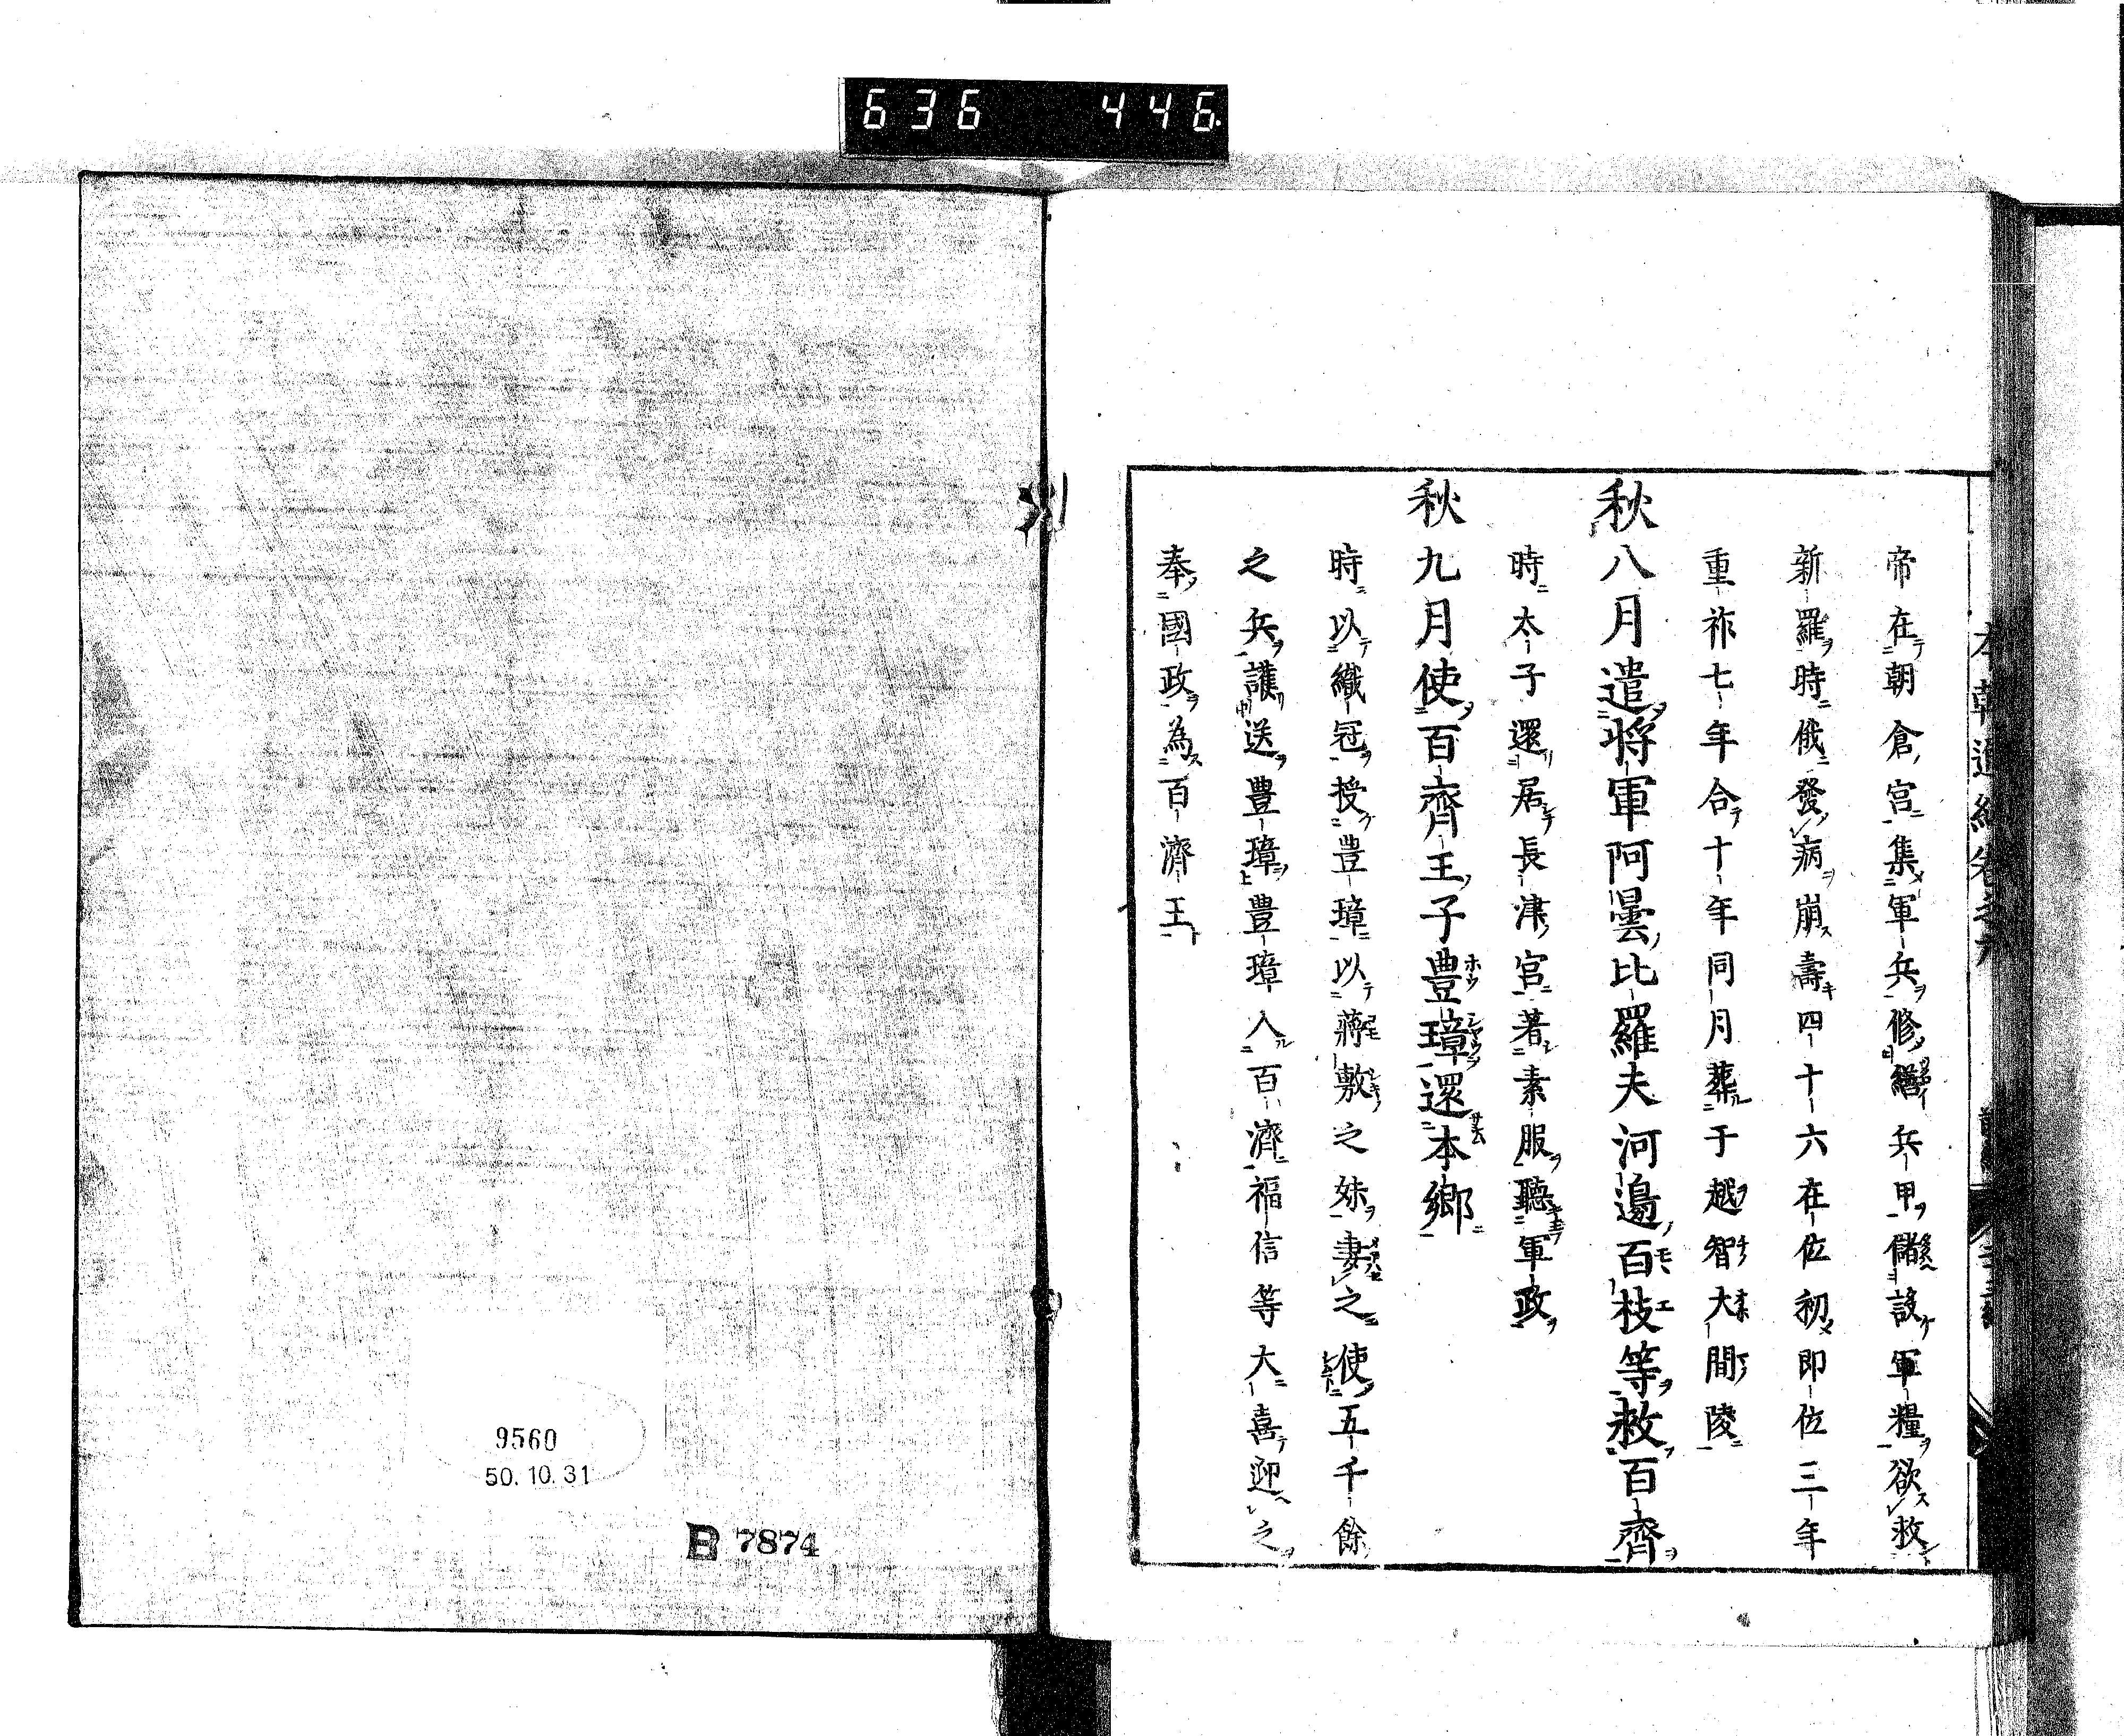 636 446
帝在朝倉宮集軍兵修繕兵甲儲設軍糧欲救
新羅時俄發病崩壽四十六在位初即位三年
重祚七年合十年同月葬于越智大間陵
秋八月遣将軍阿曇比羅夫河邊百枝等救百齊
時太子還居長津宮著素服聽軍政
秋九月使百齊王子豊璋還本鄉
時以織冠授豊璋以蔣敷之妹妻之使五千餘
之兵護送豊璋豊璋入百濟福信等大喜迎之
奉國政為百濟王
9560
50.10.31
B 7874